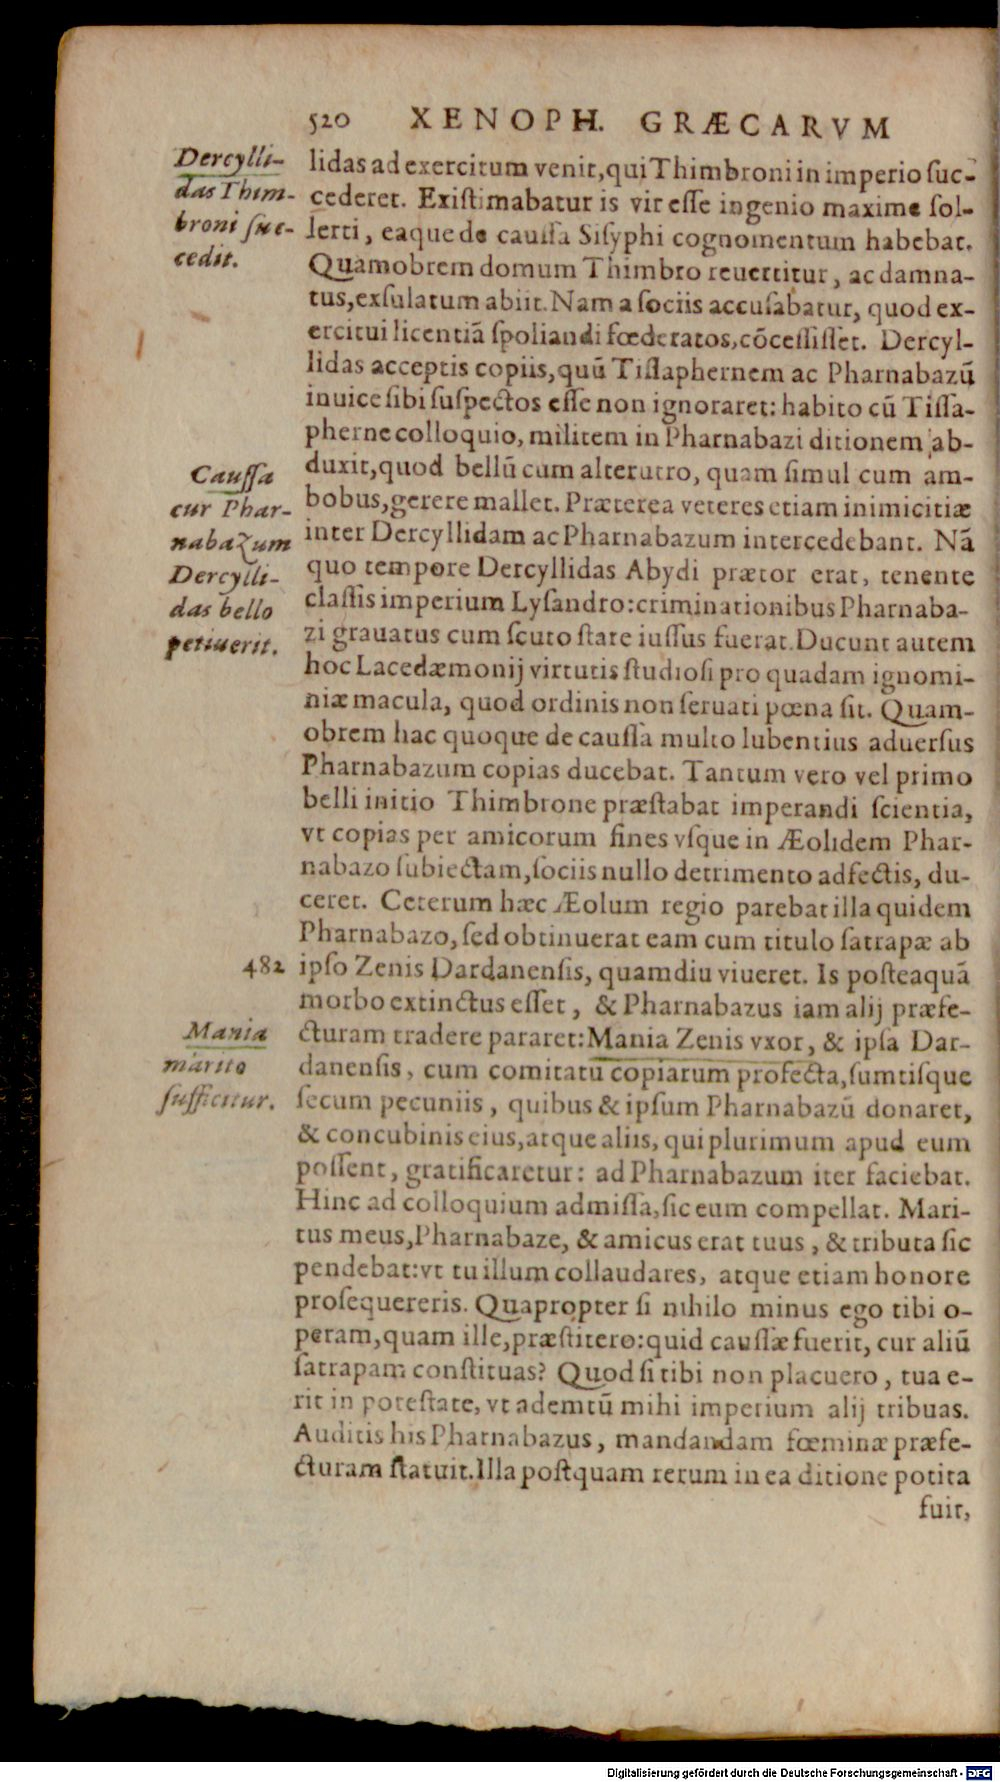 520 XENOPH. GRÆCARVM
Dercylli-
das Thim-
broni suc-
cedit.
lidas ad exercitum venit, qui Thimbroni in imperio suc-
cederet. Existimabatur is vir esse ingenio maxime sol-
lerti, eaque de caussa Sisyphi cognomentum habebat.
Quamobrem domum Thimbro reuertitur, ac damna-
tus, exsulatum abiit. Nam a sociis accusabatur, quod ex-
ercitui licentiã spoliandi fœderatos, cõcessisset. Dercyl-
lidas acceptis copiis, quũ Tissaphernem ac Pharnabazũ
inuice sibi suspectos esse non ignoraret: habito cũ Tissa-
pherne colloquio, militem in Pharnabazi ditionem ab-
duxit, quod bellũ cum alterutro, quam simul cum am-
bobus, gerere mallet. Præterea veteres etiam inimicitiæ
inter Dercyllidam ac Pharnabazum intercedebant. Nã
quo tempore Dercyllidas Abydi prætor erat, tenente
classis imperium Lysandro: criminationibus Pharnaba-
zi grauatus cum scuto stare iussus fuerat. Ducunt autem
hoc Lacedæmonij virtutis studiosi pro quadam ignomi-
niæ macula, quod ordinis non seruati pœna sit. Quam-
obrem hac quoque de caussa multo lubentius aduersus
Pharnabazum copias ducebat. Tantum vero vel primo
belli initio Thimbrone præstabat imperandi scientia,
vt copias per amicorum fines vsque in Æolidem Phar-
nabazo subiectam, sociis nullo detrimento adfectis, du-
ceret. Ceterum hæc Æolum regio parebat illa quidem
Pharnabazo, sed obtinuerat eam cum titulo satrapæ ab
ipso Zenis Dardanensis, quamdiu viueret. Is posteaquã
morbo extinctus esset, & Pharnabazus iam alij præfe-
cturam tradere pararet: Mania Zenis vxor, & ipsa Dar-
danensis, cum comitatũ copiarum profecta, sumtisque
secum pecuniis, quibus & ipsum Pharnabazũ donaret,
& concubinis eius, atque aliis, qui plurimum apud eum
possent, gratificaretur: ad Pharnabazum iter faciebat.
Hinc ad colloquium admissa, sic eum compellat. Mari-
tus meus, Pharnabaze, & amicus erat tuus, & tributa sic
pendebat: vt tu illum collaudares, atque etiam honore
prosequereris. Quapropter si nihilo minus ego tibi o-
peram, quam ille, præstitero: quid caussæ fuerit, cur aliũ
satrapam constituas? Quod si tibi non placuero, tua e-
rit in potestate, vt ademtũ mihi imperium alij tribuas.
Auditis his Pharnabazus, mandandam fœminæ præfe-
cturam statuit. Illa postquam rerum in ea ditione potita
fuit,
Caussa
cur Phar-
nabazum
Dercylli-
das bello
petiuerit.
482
Mania
marito
sufficitur.
Digitalisierung gefördert durch die Deutsche Forschungsgemeinschaft - DFG